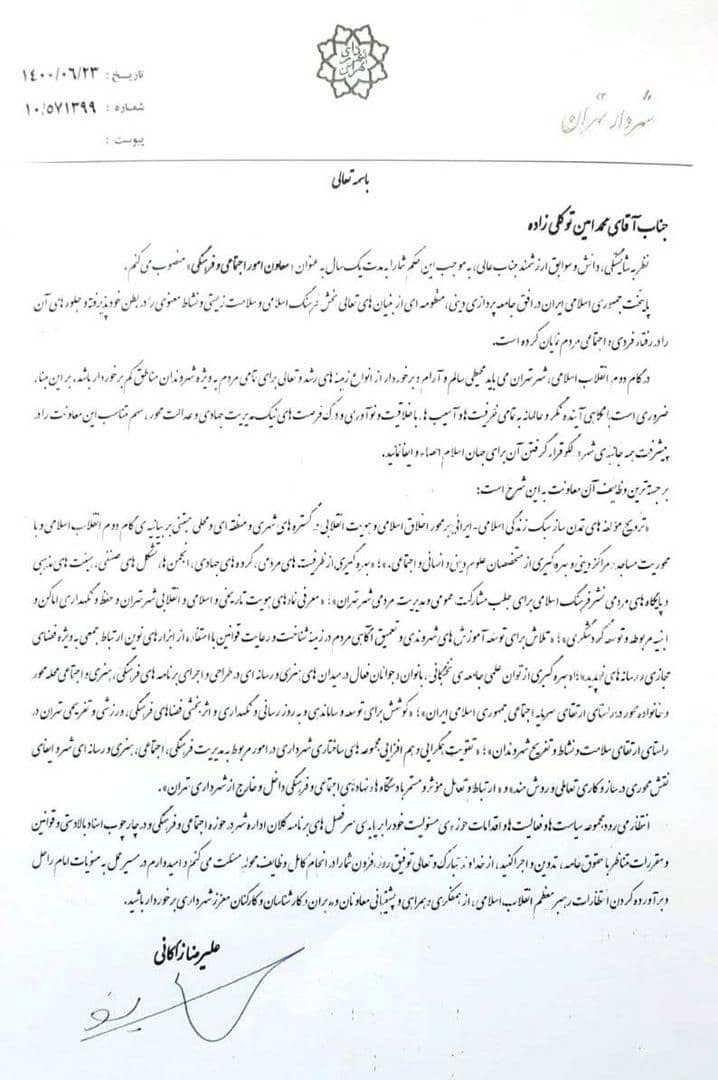 شهرداری تهران
شهردار تهران
تاریخ : ۱۴۰۰/۰۶/۲۳
شماره : ۱۰/۵۷۱۳۹۹
پیوست :
باسمه تعالی
جناب آقای محمد امین توکلی زاده
نظر به شایستگی، دانش و سوابق ارزشمند جناب عالی، به موجب این حکم شما را به مدت یک سال به عنوان «معاون امور اجتماعی و فرهنگی» منصوب می کنم.
پایتخت جمهوری اسلامی ایران در افق جامعه پردازی دینی، منظومه ای از بنیان های تعالی بخش فرهنگ اسلامی و سلامت زیستی و نشاط معنوی را در بطن خود پذیرفته و جلوه های آن
را در رفتار فردی و اجتماعی مردم نمایان کرده است.
در گام دوم انقلاب اسلامی، شهر تهران می باید محیطی سالم و آرام و برخوردار از انواع زمینه های رشد و تعالی برای تمامی مردم به ویژه شهروندان مناطق کم برخوردار باشد. بر این بنا،
ضروری است با نگاهی آینده نگر و عالمانه به تمامی ظرفیت ها و آسیب ها، با خلاقیت و نوآوری و درک فرصت های نیک مدیریت جهادی و عدالت محور، سهم متناسب این معاونت را در
پیشرفت همه جانبه ی شهر و الگو قرار گرفتن آن برای جهان اسلام احصاء و ایفا نمائید.
برجسته ترین وظایف آن معاونت به این شرح است:
«ترویج مؤلفه های تمدن ساز سبک زندگی اسلامی-ایرانی بر محور اخلاق اسلامی و هویت انقلابی در گستره های شهری و منطقه ای و محلی مبتنی بر بیانیه ی گام دوم انقلاب اسلامی و با
محوریت مساجد، مراکز دینی و بهره گیری از متخصصان علوم دینی و انسانی و اجتماعی»؛ «بهره گیری از ظرفیت های مردمی، گروه های جهادی، انجمن ها، تشکل های صنفی، هیئت های مذهبی
و پایگاه های مردمی نشر فرهنگ اسلامی برای جلب مشارکت عمومی و مدیریت مردمی شهر تهران»؛ «معرفی نمادهای هویت تاریخی و اسلامی و انقلابی شهر تهران و حفظ و نگهداری اماکن و
ابنیه مربوطه و توسعه گردشگری»؛ «تلاش برای توسعه آموزش های شهروندی و تعمیق آگاهی مردم در زمینه شناخت و رعایت قوانین با استفاده از ابزارهای نوین ارتباط جمعی به ویژه فضای
مجازی و رسانه های نوپدید»؛ «بهره گیری از توان علمی جامعه ی نخبگانی، بانوان و جوانان فعال در میدان های هنری و رسانه ای در طراحی و اجرای برنامه های فرهنگی، هنری و اجتماعی محله محور
و خانواده محور در راستای ارتقای سرمایه اجتماعی جمهوری اسلامی ایران»؛ «کوشش برای توسعه و ساماندهی و به روز رسانی و نگهداری و اثربخشی فضاهای فرهنگی، ورزشی و تفریحی تهران در
راستای ارتقای سلامت و نشاط و تفریح شهروندان»؛ «تقویت همگرایی و هم افزایی مجموعه های ساختاری شهرداری در امور مربوط به مدیریت فرهنگی، اجتماعی، هنری و رسانه ای شهر و ایفای
نقش محوری در ساز و کاری تعاملی و روش مند» و «ارتباط و تعامل مؤثر و مستمر با دستگاه ها و نهادهای اجتماعی و فرهنگی داخل و خارج از شهرداری تهران».
انتظار می رود مجموعه سیاست ها و فعالیت ها و اقدامات حوزه ی مسئولیت خود را بر پایه ی سرفصل های برنامه کلان اداره شهر در حوزه اجتماعی و فرهنگی و در چارچوب اسناد بالادستی و قوانین
و مقررات متناظر با حقوق عامه، تدوین و اجرا کنید. از خداوند تبارک و تعالی توفیق روزافزون شما را در انجام کامل وظایف محوله مسئلت می کنم و امیدوارم در مسیر عمل به منویات امام راحل
و برآورده کردن انتظارات رهبر معظم انقلاب اسلامی، از همفکری و همراهی و پشتیبانی معاونان و مدیران و کارشناسان و کارکنان معزز شهرداری برخوردار باشید.
علیرضا زاکانی